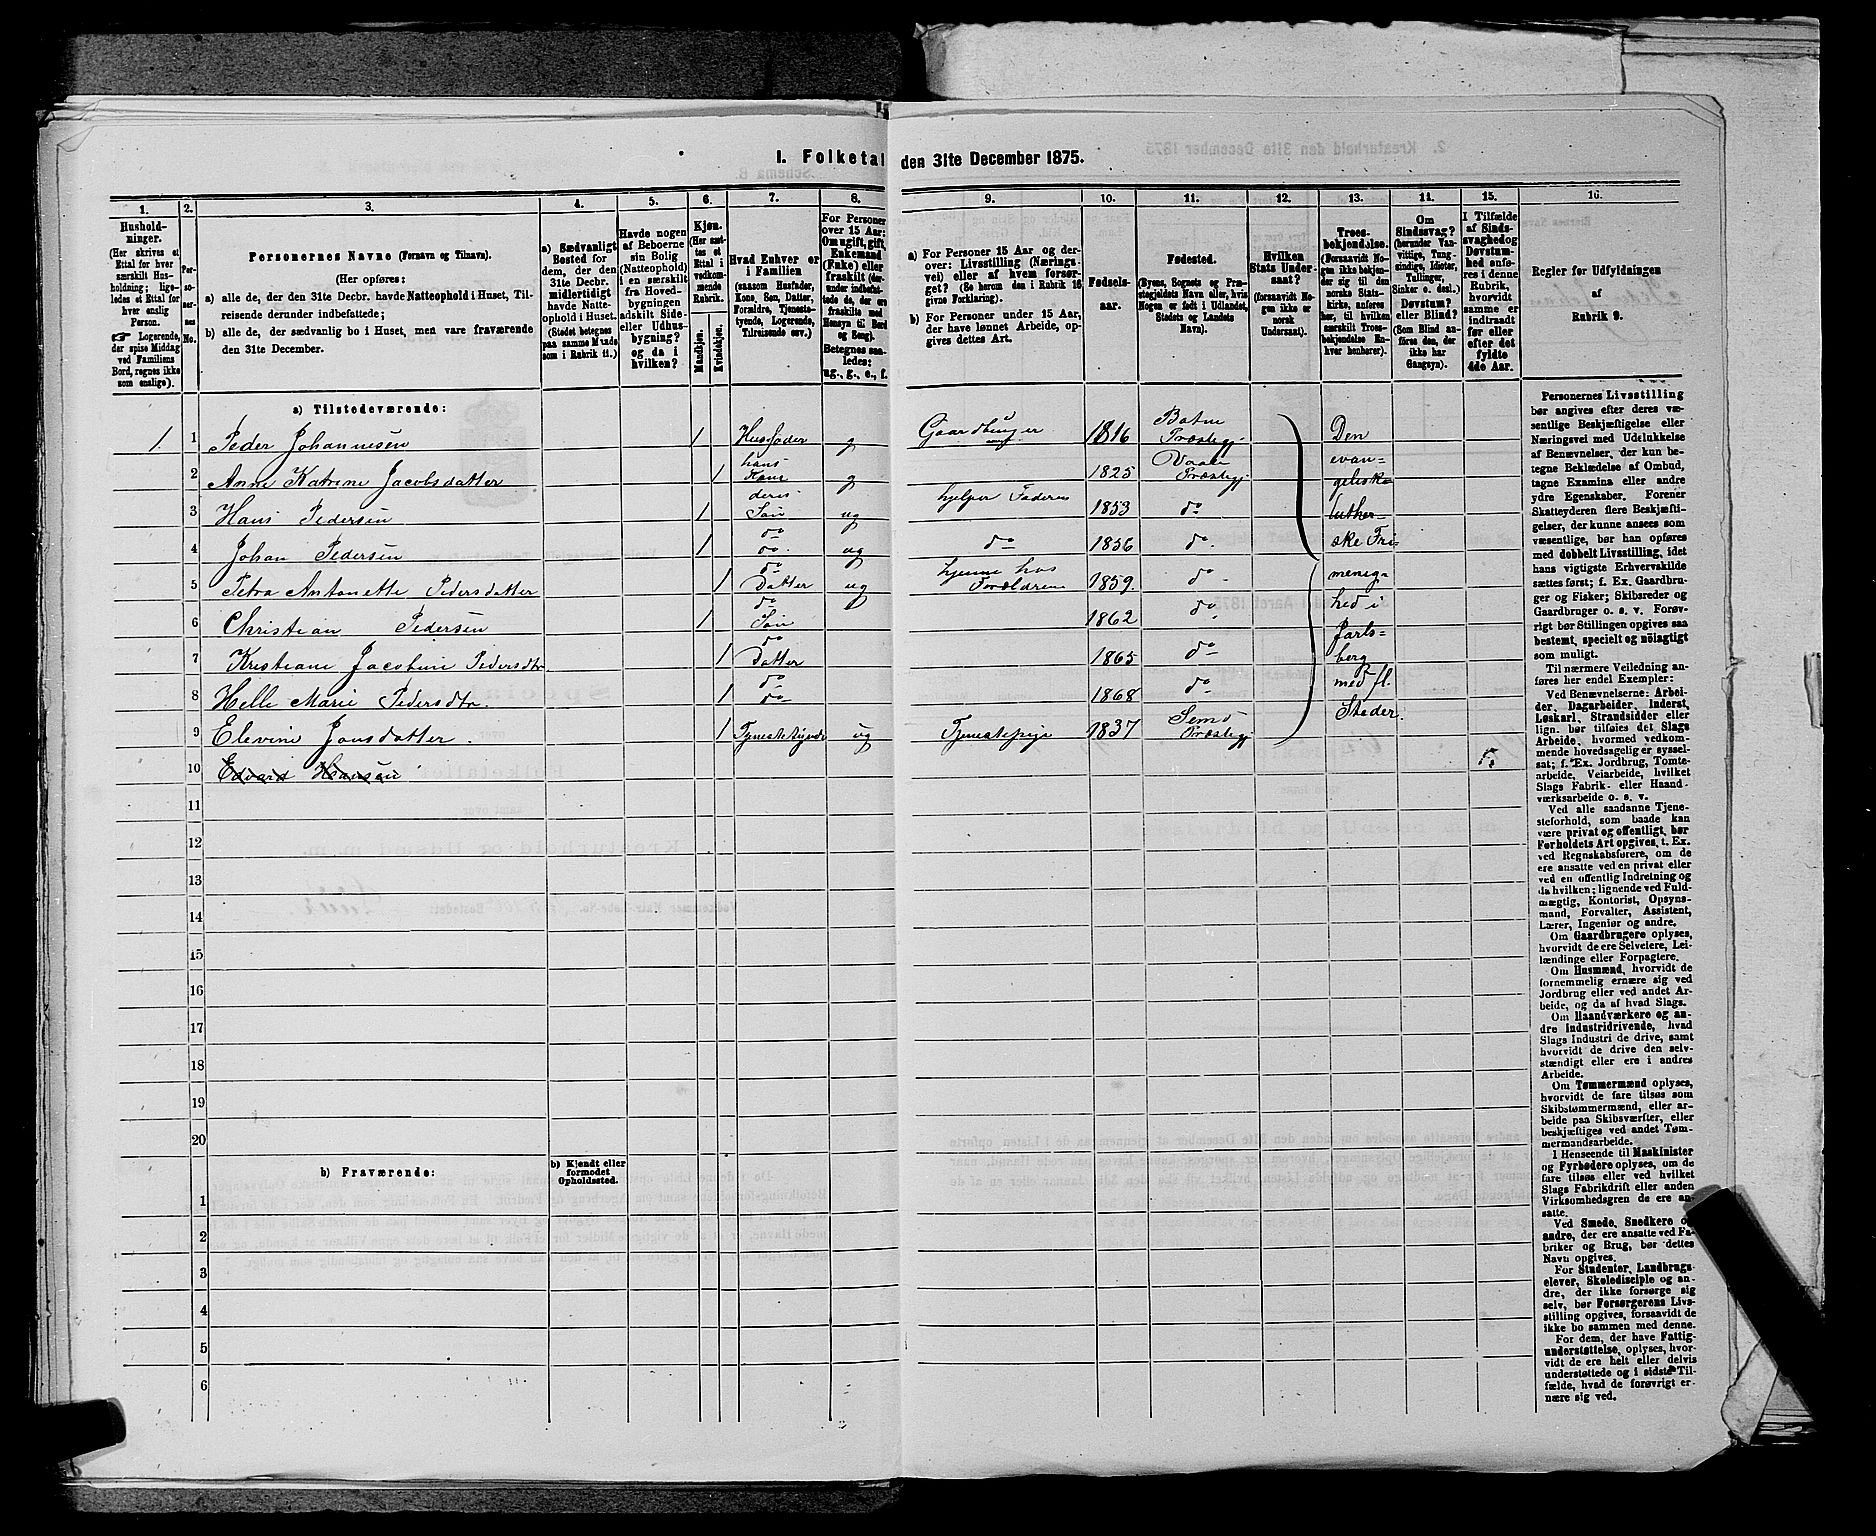 I. Folketal den 31te December 1875.
1. 2. 3. 4. 5. 6. 7. 8. 9. 10. 11. 12. 13. 14. 15. 16.
Hushold-
ninger.
(Her skrives et
Ettal for hver
særskilt Hus-
holdning; lige-
ledes et Ettal for
hver enslig
Person.
☞ Logerende,
der spise Middag
ved Familiens
Bord, regnes ikke
som enslige).
Per-
so-
ner-
nes
No.
Personernes Navne (Fornavn og Tilnavn).
(Her opføres:
a) alle de, der den 31te Decbr. havde Natteophold i Huset, Til-
reisende derunder indbefattede;
b) alle de, der sædvanlig bo i Huset, men vare fraværende
den 31te December.
a) Sædvanligt
Bosted for
dem, der den
31te Decbr.
midlertidigt
havde Natte-
ophold i Huset.
(Stedet betegnes
paa samme Maade
som i Rubrik 11.)
Havde nogen
af Beboerne
sin Bolig
(Natteophold)
i en særskilt
fra Hoved-
bygningen
adskilt Side-
eller Udhus-
bygning?
og da i
hvilken?
Kjøn.
(Her sæt-
tes et
Ettal i
vedkom-
mende
Rubrik.
Mandkjøn.
Kvindekjøn.
Hvad Enhver er
i Familien
(saasom Husfader,
Kone, Søn, Datter,
Forældre, Tjeneste-
tyende, Logerende,
Tilreisende osv.)
For Personer
over 15 Aar:
Om ugift, gift,
Enkemand
(Enke) eller
fraskilt (der-
under indbefat-
tede de, der ere
fraskilte med
Hensyn til Bord
og Seng).
Betegnes saa-
ledes:
ug., g., e., f.
a) For Personer 15 Aar og der-
over: Livsstilling (Nærings-
vei) eller af hvem forsør-
get? (Se herom den i Rubrik 16
givne Forklaring).
b) For Personer under 15 Aar,
der have lønnet Arbeide, op-
gives dettes Art.
Fødsels-
aar.
Fødested.
(Byens, Sognets og Præ-
stegjeldets Navn eller, hvis
Nogen er født i Udlandet,
Stedets og Landets
Navn).
Hvilken
Stats Under-
saat?
(forsaavidt No-
gen ikke er
norsk
Undersaat).
Troes-
bekjendelse.
(Forsaavidt No-
gen ikke bekjen-
der sig til den
norske Stats-
kirke, anføres
her, til hvilken
særskilt Troes-
bekjendelse En-
hver henhører).
Om
Sindssvag?
(herunder Van-
vittige, Tung-
sindige, Idioter,
Tullinger,
Sinker o. desl.)
Døvstum?
eller Blind?
(Som Blind an-
føres den, der
ikke har
Gangsyn).
I Tilfælde
af Sinds-
svaghed og
Døvstum-
hed anfø-
res i denne
Rubrik,
hvorvidt
samme er
indtraadt
før eller
efter det
fyldte
4de Aar.
Regler for Udfyldningen
af
Rubrik 9.
a) Tilstedeværende:
1. 1 Peder Johannesen 1 Husfader g Gaardbruger 1816 Botne Præstegj. Den
2 Anne Katrine Jacobsdatter 1 hans Kone g 1825 Vaale Præstegj. evan=
3 Hans Pedersen 1 deres Søn ug hjelper Faderen 1853 do geliske
4 Johan Pedersen 1 do do. ug do 1856 do. luther-
ske Fri=
5 Petra Antonette Pedersdatter 1 do Datter ug hjemme hos Forældrene 1859. do menig-
6 Christian Pedersen 1 do Søn 1862 do hed i
7 Kristiane Jacobine Pedersdtr 1 do Datter 1865 do Jarls=
berg
8 Helle Marie Pedersdtr. 1 do do 1868 do med fl.
9 Elevine Jonsdatter. 1 Tjenestetyende ug Tjenestepige 1837 Sems Præstegj Steder.
10 Edvard Hansen
11
12
13
14
15
16
17
18
19
20
b) Fraværende:
b) Kjendt eller
formodet
Opholdssted.
1
2
3
4
5
6
Personernes Livsstilling
bør angives efter deres væ-
sentlige Beskjæftigelse eller
Næringsvei med Udelukkelse
af Benævnelser, der kun be-
tegne Beklædelse af Ombud,
tagne Examina eller andre
ydre Egenskaber. Forener
Skatteyderen flere Beskjæfti-
gelser, der kunne ansees som
væsentlige, bør han opføres
med dobbelt Livsstilling, idet
hans vigtigste Erhvervskilde
sættes først; f. Ex. Gaardbru-
ger og Fisker; Skibsreder og
Gaardbruger o. s. v. Forøv-
rigt bør Stillingen opgives saa
bestemt, specielt og nøiagtigt
som muligt.
Til nærmere Veiledning an-
føres her endel Exempler:
Ved Benævnelserne: Arbei-
der, Dagarbeider, Inderst,
Løskarl, Strandsidder eller
lign. bør tilføies det Slags
Arbeide, hvormed vedkom-
mende hovedsagelig er syssel-
sat; f. Ex. Jordbrug, Tomte-
arbeide, Veiarbeide, hvilket
Slags Fabrik- eller Haand-
værksarbeide o. s. v.
Ved alle saadanne Tjene-
steforhold, som baade kan
være privat og offentligt, bør
Forholdets Art opgives, t. Ex.
ved Regnskabsførere, om de
ere ansatte ved en privat eller
ved en offentlig Indretning og
da hvilken; lignende ved Fuld-
mægtig, Kontorist, Opsyns-
mand, Forvalter, Assistent,
Lærer, Ingeniør og andre.
Om Gaardbrugere oplyses,
hvorvidt de ere Selveiere, Lei-
lændinge eller Forpagtere.
Om Husmænd, hvorvidt de
fornemmelig ernære sig ved
Jordbrug eller ved andet Ar-
beide, og da af hvad Slags.
Om Haandværkere og an-
dre Industridrivende, hvad
Slags Industri de drive, samt
hvorvidt de drive den selv-
stændigt eller ere i andres
Arbeide.
Om Tømmermænd oplyses,
hvorvidt de fare tilsøs som
Skibstømmermænd, eller ar-
beide paa Skibsværfter, eller
beskjæftiges ved andet Tøm-
mermandsarbeide.
I Henseende til Maskinister
og Fyrbødere oplyses, om de
fare tilsøs eller ved hvilket
Slags Fabrikdrift eller anden
Virksomhedsgren de ere an-
satte.
Ved Smede, Snedkere og
andre, der ere ansatte ved Fa-
briker og Brug, bør dettes
Navn opgives.
For Studenter, Landbrugs-
elever, Skoledisciple og an-
dre, der ikke forsørge sig
selv, bør Forsørgerens Livs-
stilling opgives, forsaavidt de
ikke bo sammen med denne.
For dem, der have Fattig-
understøttelse, oplyses, hvor-
vidt de ere helt eller delvis
understøttede og i sidste Til-
fælde, hvad de forøvrigt er-
nære sig ved.